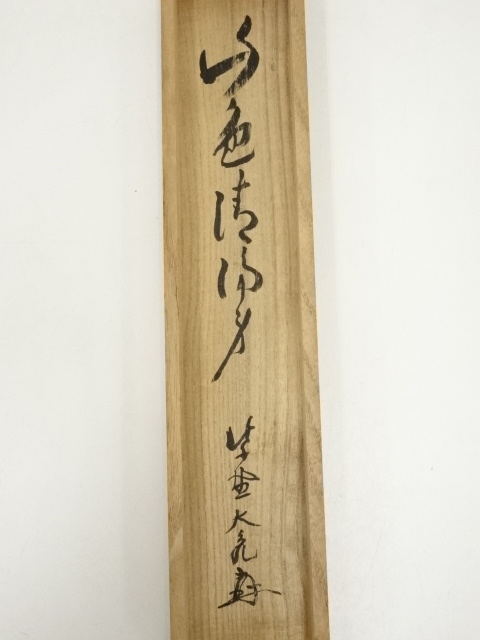 山色清浄身
紫野大亀